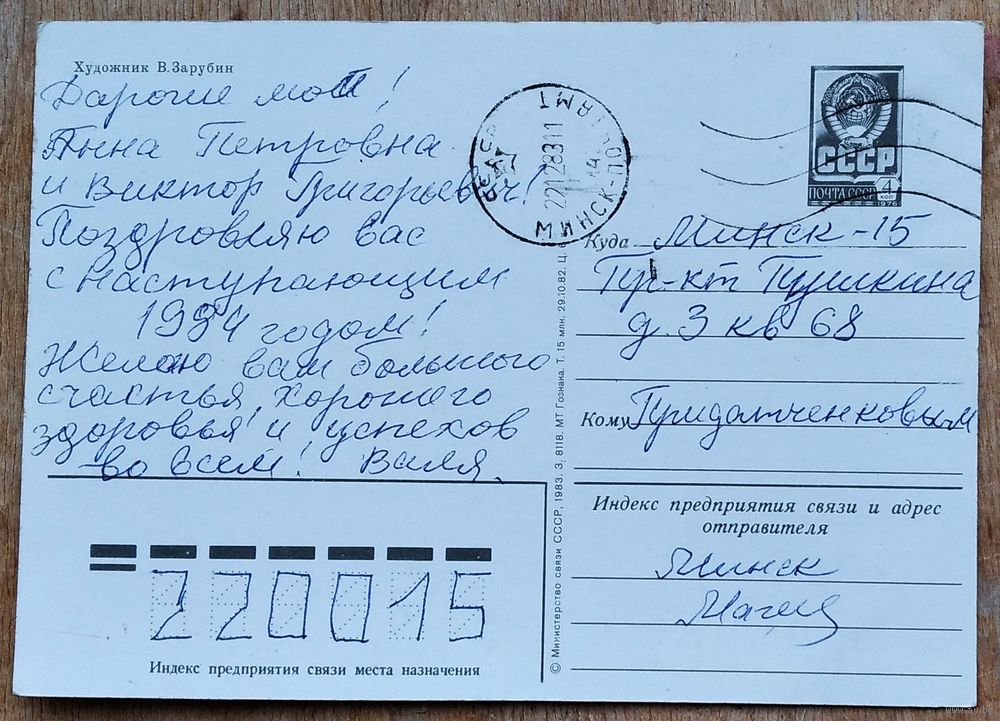 Художник В.Зарубин
Дарогие мои!
Анна Петровна
и Виктор Григорьевич!
Поздровляю вас
с наступающим
1984 годом!
Желаю вам большого
счастья, хорошего
здоровья и успехов
во всем! Валя.
МИНСК-ПОЧТАМТ
221283 11
СССР
ПОЧТА СССР 4 КОП
1976
Куда Минск-15
Пр-кт Пушкина
д. 3 кв 68
Кому Придатченковым
Индекс предприятия связи и адрес
отправителя
Минск
220015
Индекс предприятия связи места назначения
© Министерство связи СССР, 1983. З. 8118. МТ Гознака. Т. 15 млн. 29.10.82. Ц.